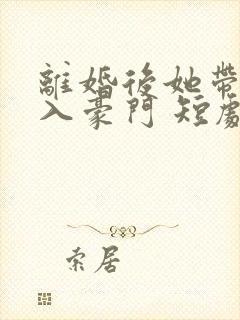 離婚後她帶
入豪門 短劇
索居